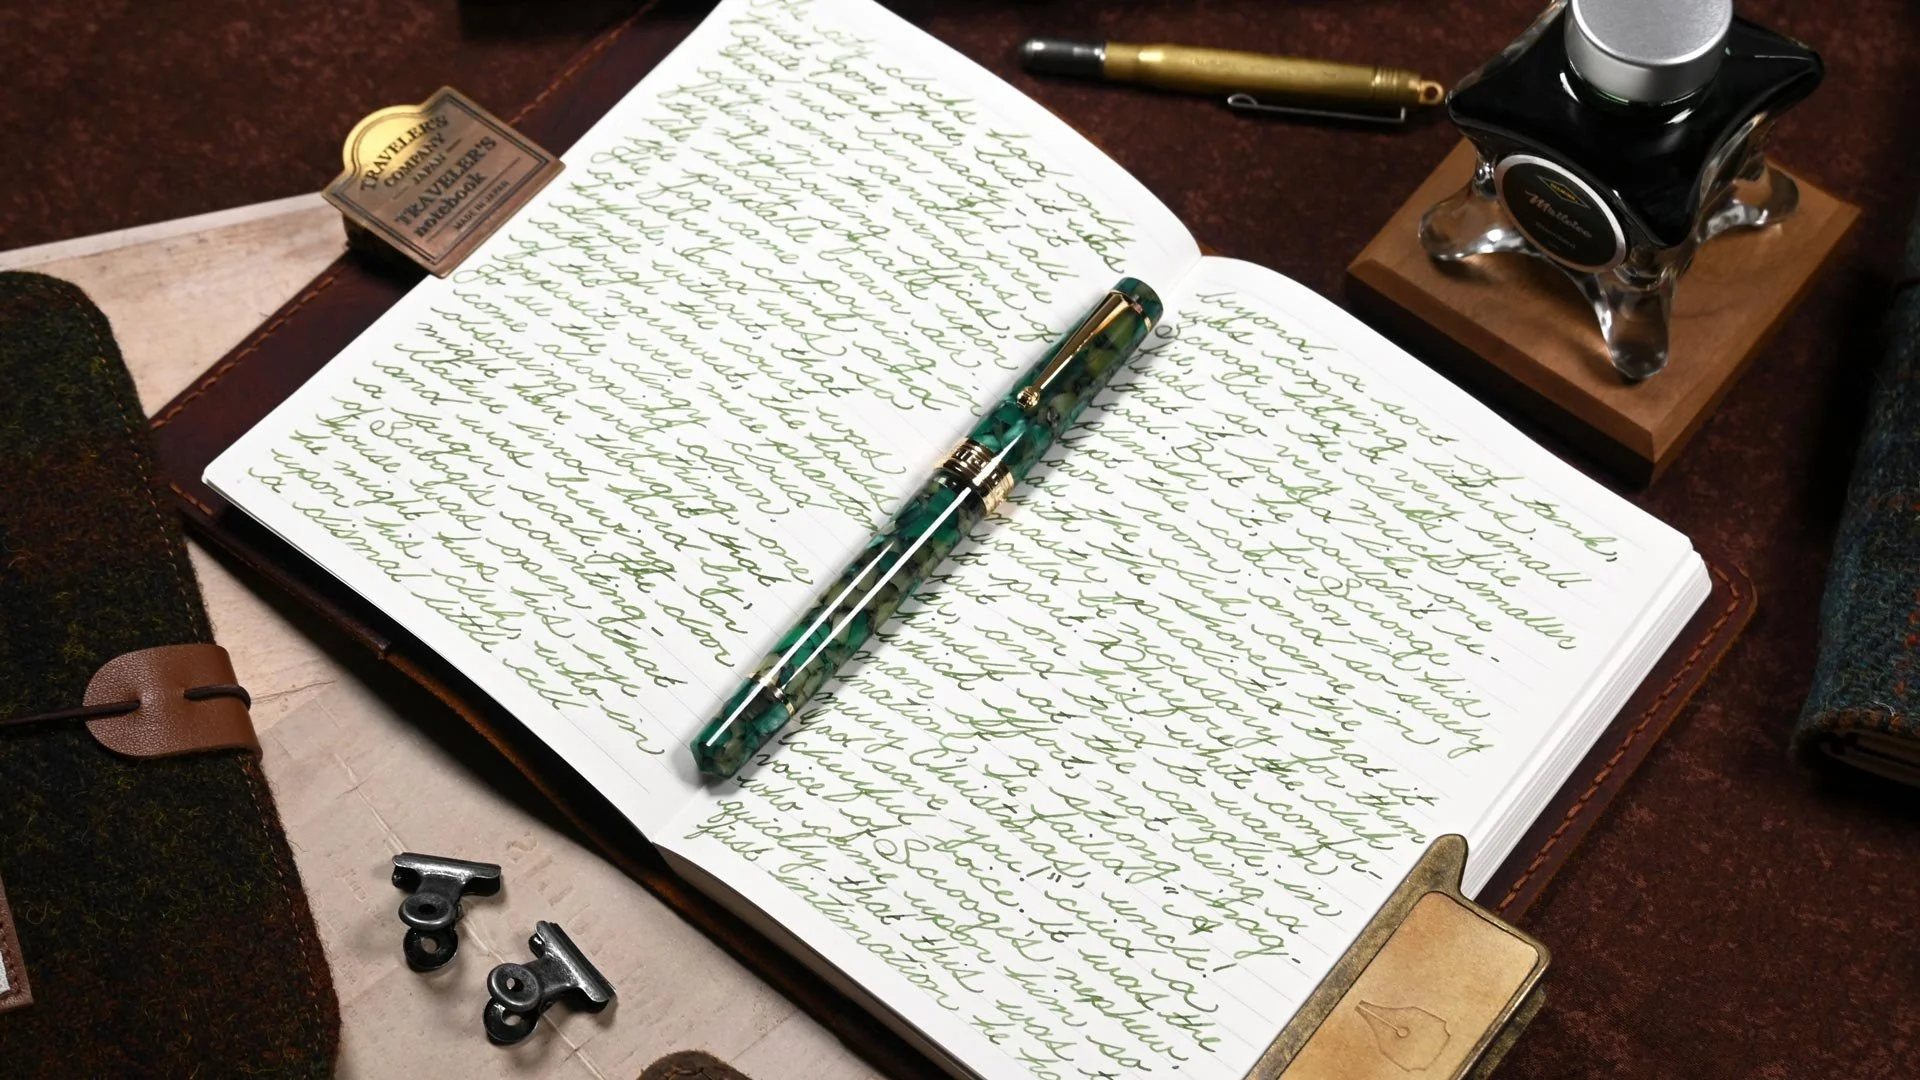 TRAVELER'S
COMPANY
JAPAN
TRAVELER'S
notebook
MADE IN JAPAN
city clocks had only
just gone three, but it was
quite dark already - it
had not been light all
day - and candles were
flaring in the windows of
the neighbouring offices,
like ruddy smears upon
the palpable brown air.
The fog came pouring in
at every chink and
keyhole, and was so
dense without, that
although the court was
of the narrowest, the houses
opposite were mere phantoms.
To see the dingy cloud
come drooping down,
obscuring everything, one
might have thought that
Nature lived hard by,
and was brewing on
a large scale. The door
of Scrooge's counting-
house was open that
he might keep his eye
upon his clerk, who in
a dismal little cell
beyond, a sort of tank,
was copying letters.
Scrooge had a very small
fire, but the clerk's fire
was so very much smaller
that it looked like one
coal. But he couldn't re-
plenish it, for Scrooge
the coal-box in his
room; and so surely
as the clerk came in
with the shovel, the
predicted that it
would be necessary for them
to part. Wherefore the clerk
put on his white comfor-
ter, and tried to warm
himself at the candle; in
which effort, not being a
man of a strong imag-
ination, he failed. "A
merry Christmas, uncle!
God save you!" cried a
cheerful voice. It was the
voice of Scrooge's nephew
who came upon him so
quickly that this was
first intimation he